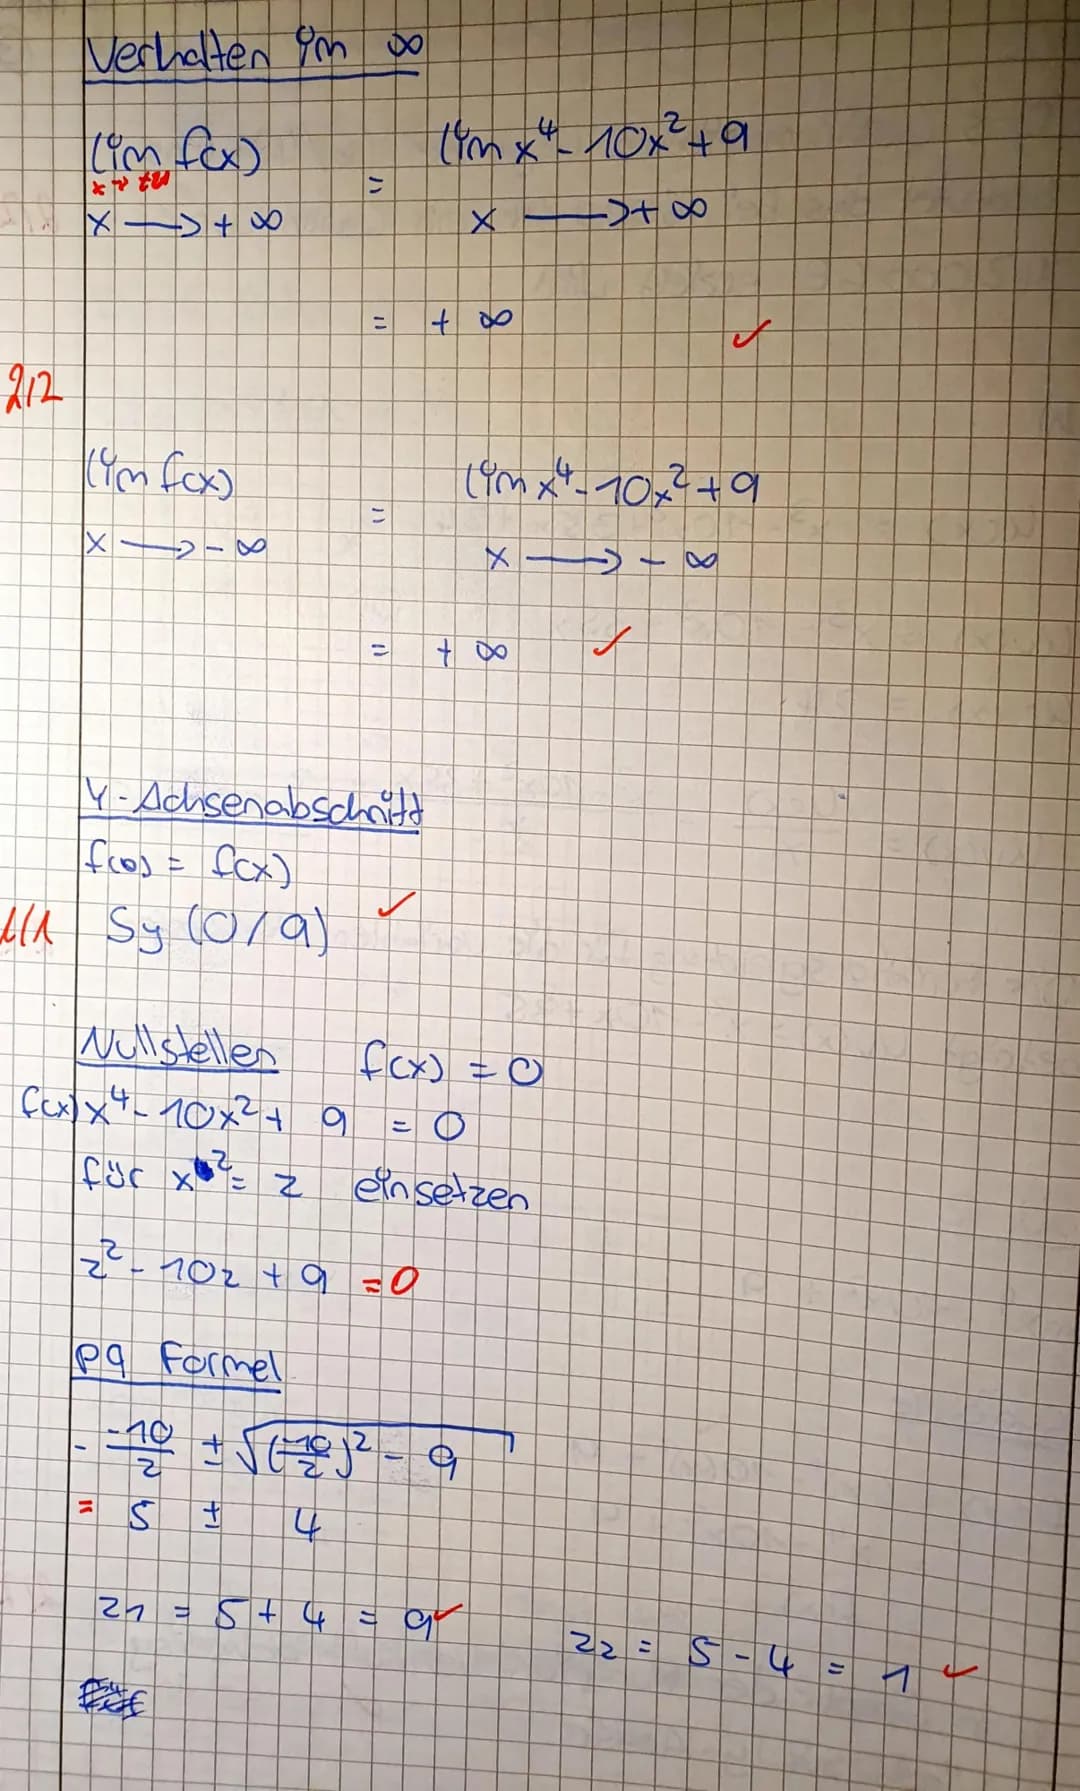 Verhalten im ∞
lim f(x) = lim x⁴ - 10x² + 9
x → ±∞
x → + ∞ x → + ∞
= + ∞ ✓
2/2
lim f(x) = lim x⁴ - 10x² + 9
x → - ∞ x → - ∞
= + ∞ ✓
Y-Achsenabschnitt
f(0) = f(x)
1/1 Sy (0/9) ✓
Nullstellen f(x) = 0
f(x) x⁴ - 10x² + 9 = 0
für x² = z einsetzen
z² - 10z + 9 = 0
pq Formel
- -10/2 ± √((-10/2)² - 9)
= 5 ± 4
z1 = 5 + 4 = 9 ✓
z2 = 5 - 4 = 1 ✓